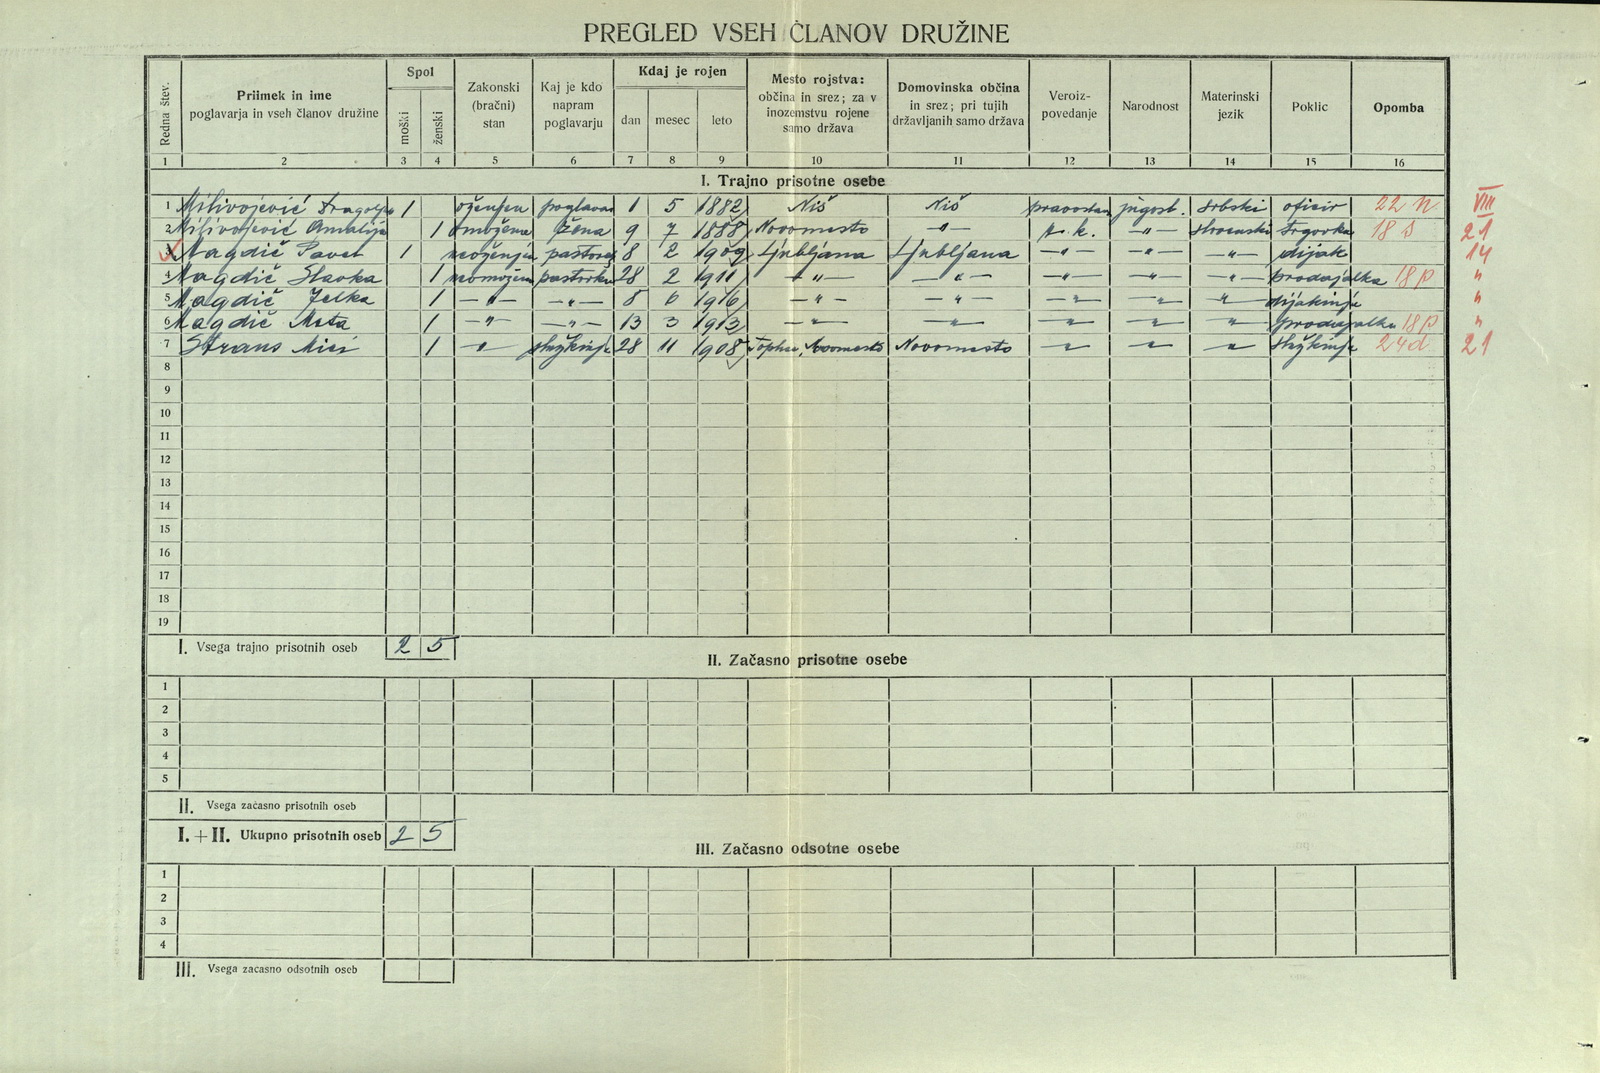 PREGLED VSEH ČLANOV DRUŽINE
Redna štev. Priimek in ime poglavarja in vseh članov družine Spol moški ženski Zakonski (bračni) stan Kaj je kdo napram poglavarju Kdaj je rojen dan mesec leto Mesto rojstva: občina in srez; za v inozemstvu rojene samo država Domovinska občina in srez; pri tujih državljanih samo država Veroizpovedanje Narodnost Materinski jezik Poklic Opomba
1 2 3 4 5 6 7 8 9 10 11 12 13 14 15 16
I. Trajno prisotne osebe
1 Milivojević 1 oženjen poglavar 1 5 1882 Niš Niš pravoslav jugosl. srbski oficir 22 n VIII
2 Milivojević Amalija 1 omožena žena 9 7 1888 Novomesto —"— r. k. —"— slovenski trgovka 18 s 21
3 Magdič Pavel 1 neoženjen pastorek 8 2 1909 Ljubljana Ljubljana —"— —"— —"— dijak 14
4 Magdič Slavka 1 neomožena pastorka 28 2 1911 —"— —"— —"— —"— —"— prodajalka 18 p "
5 Magdič Jelka 1 —"— —"— 8 6 1916 —"— —"— —"— —"— —"— dijakinja "
6 Magdič Meta 1 —"— —"— 13 3 1913 —"— —"— —"— —"— —"— prodajalka 18 p "
7 Strans Mici 1 —"— služkinja 28 11 1908 Novomesto Novomesto —"— —"— —"— služkinja 24d 21
8
9
10
11
12
13
14
15
16
17
18
19
I. Vsega trajno prisotnih oseb 2 5
II. Začasno prisotne osebe
1
2
3
4
5
II. Vsega začasno prisotnih oseb
I. + II. Ukupno prisotnih oseb 2 5
III. Začasno odsotne osebe
1
2
3
4
III. Vsega zacasno odsotnih oseb